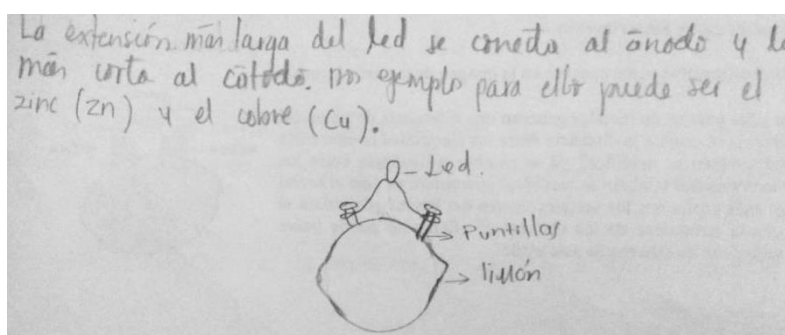 La extensión más larga del led se conecta al ánodo y la
más corta al cátodo. Por ejemplo para ello puede ser el
zinc (Zn) y el cobre (Cu).
Led.
Puntillas
limón